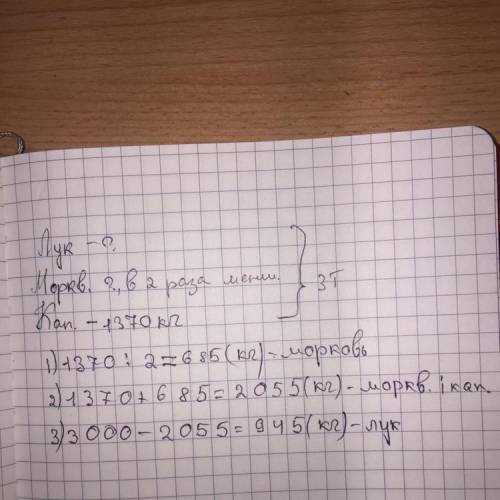 Лук - ?
Моркв. ?, в 2 раза менш. } 3т
Кап. - 1370 кг
1) 1370 : 2 = 685 (кг) - морковь
2) 1370 + 685 = 2055 (кг) - моркв. і кап.
3) 3000 - 2055 = 945 (кг) - лук